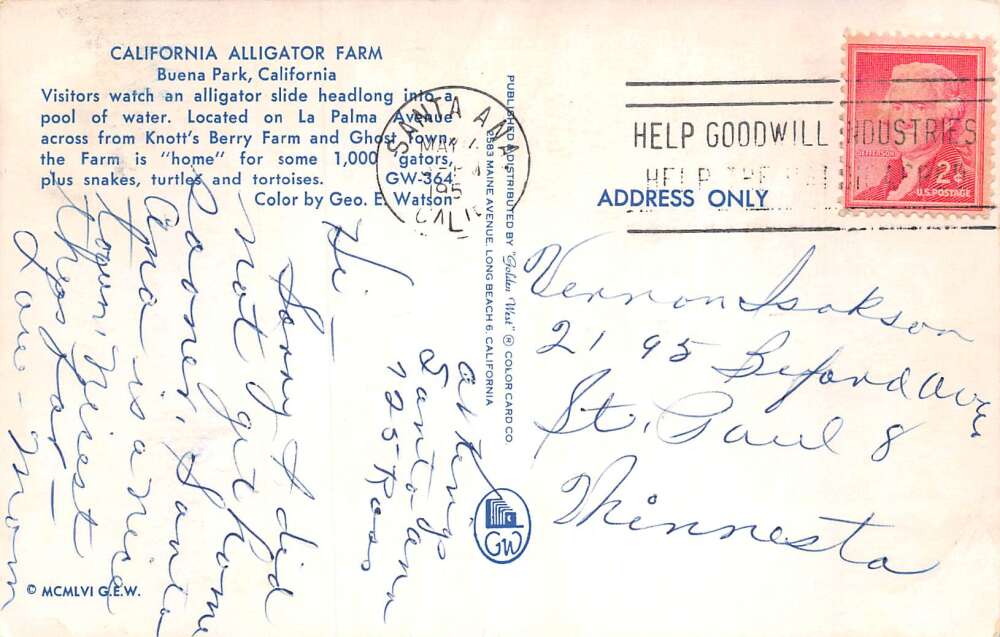 CALIFORNIA ALLIGATOR FARM
Buena Park, California
Visitors watch an alligator slide headlong into a
pool of water. Located on La Palma Avenue
across from Knott's Berry Farm and Ghost Town,
the Farm is "home" for some 1,000 'gators,
plus snakes, turtles and tortoises. GW-364
Color by Geo. E. Watson
Hi,
Sorry I did
not get home
sooner, Santa
Ana is a nice
town, nicest
thus far
Love - Mom
at Kings
Santa ana
125-Ross
© MCMLVI G.E.W.
PUBLISHED & DISTRIBUTED BY "Golden West" ® COLOR CARD CO.
2883 MAINE AVENUE, LONG BEACH 6, CALIFORNIA
GW
SANTA ANA
MAY
195
CALIF
HELP GOODWILL INDUSTRIES
HELP THE
JEFFERSON
2¢
U.S. POSTAGE
ADDRESS ONLY
Vernon Isakson
2195 Beford ave
St. Paul 8
Minnesta